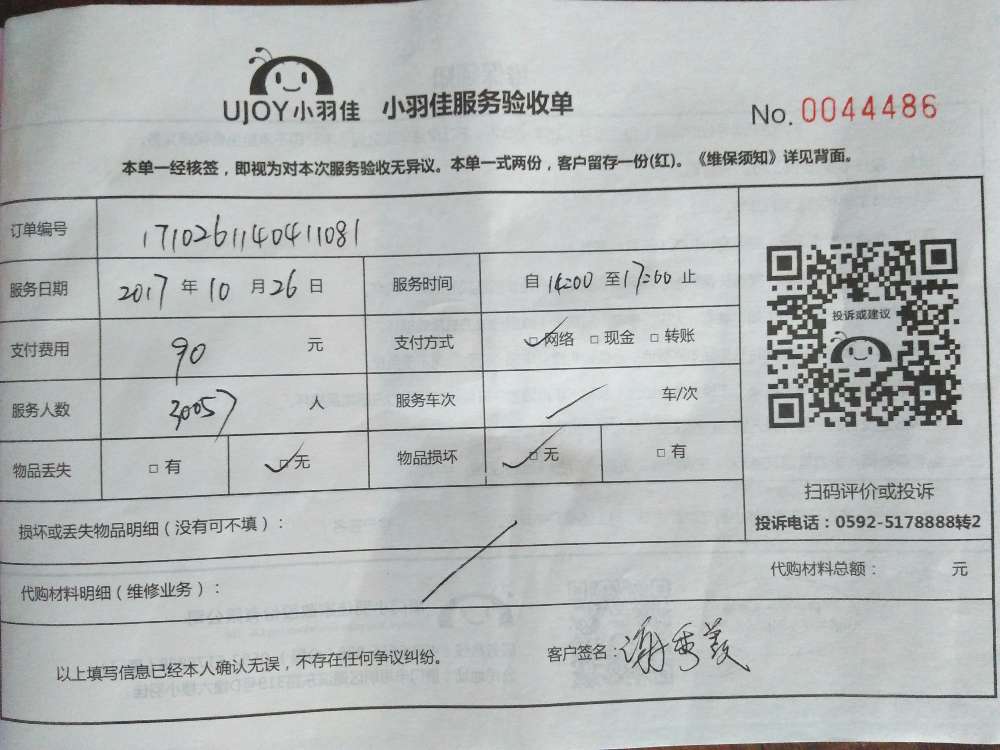 UJOY小羽佳 小羽佳服务验收单
No. 0044486
本单一经核签，即视为对本次服务验收无异议。本单一式两份，客户留存一份(红)。《维保须知》详见背面。
订单编号 1710261140411081
服务日期 2017 年 10 月 26 日 服务时间 自 14:00 至 17:00 止
支付费用 90 元 支付方式 ☑网络 □现金 □转账
投诉或建议
服务人数 30057 人 服务车次 / 车/次
物品丢失 □有 ☑无 物品损坏 ☑无 □有
扫码评价或投诉
投诉电话：0592-5178888转2
损坏或丢失物品明细（没有可不填）：
代购材料明细（维修业务）：
代购材料总额： 元
以上填写信息已经本人确认无误，不存在任何争议纠纷。
客户签名：谢秀美